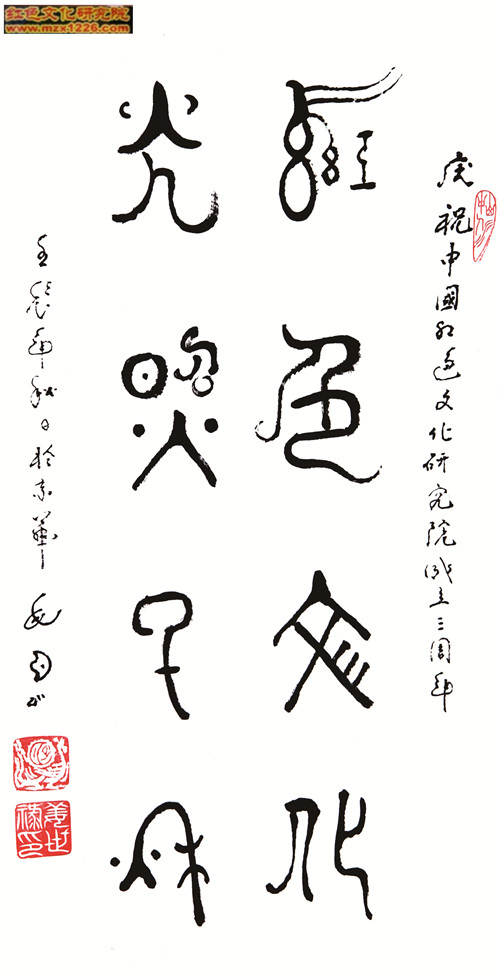 红色文化研究院
www.mzx1226.com
庆祝中国红色文化研究院成立三周年
红色文化
光照千秋
壬辰年秋日於京華